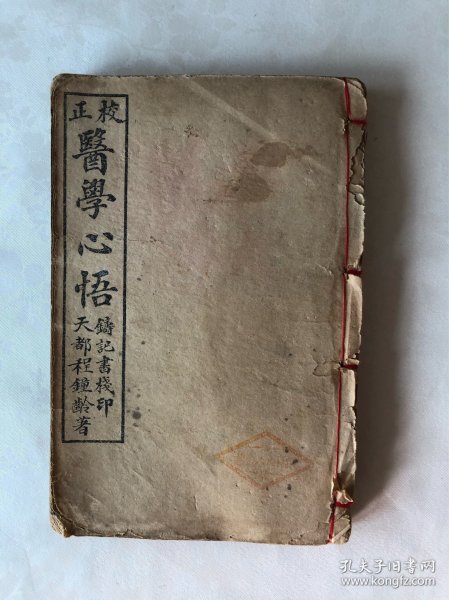 校正
醫學心悟
鑄記書棧印
天都程鐘齡著
孔夫子旧书网
www.kongfz.com